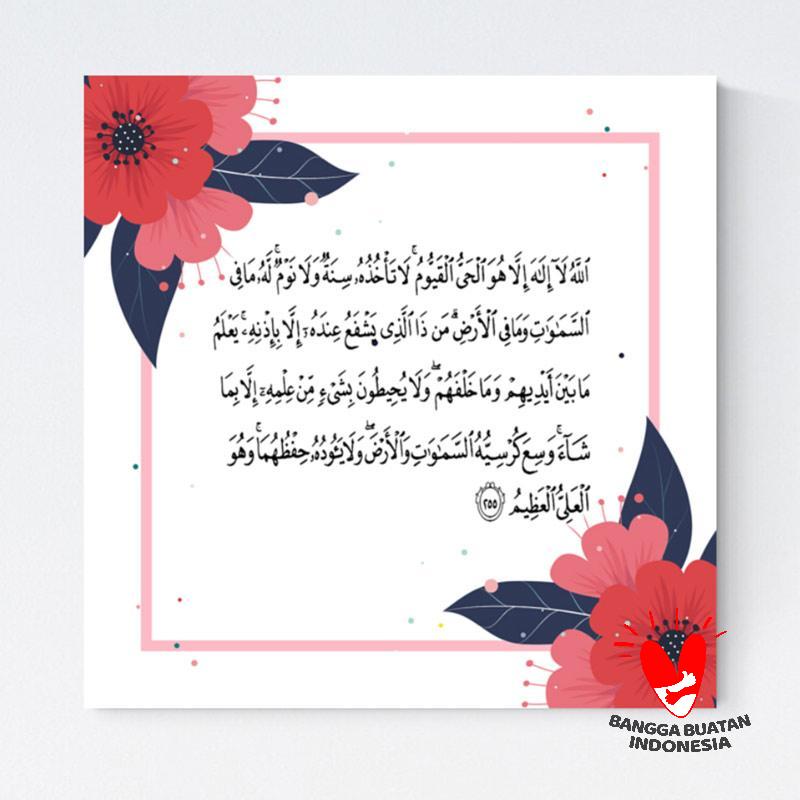 ٱللَّهُ لَآ إِلَٰهَ إِلَّا هُوَ ٱلْحَىُّ ٱلْقَيُّومُ ۚ لَا تَأْخُذُهُۥ سِنَةٌ وَلَا نَوْمٌ ۚ لَّهُۥ مَا فِى
ٱلسَّمَٰوَٰتِ وَمَا فِى ٱلْأَرْضِ ۗ مَن ذَا ٱلَّذِى يَشْفَعُ عِندَهُۥٓ إِلَّا بِإِذْنِهِۦ ۚ يَعْلَمُ
مَا بَيْنَ أَيْدِيهِمْ وَمَا خَلْفَهُمْ ۖ وَلَا يُحِيطُونَ بِشَىْءٍ مِّنْ عِلْمِهِۦٓ إِلَّا بِمَا
شَآءَ ۚ وَسِعَ كُرْسِيُّهُ ٱلسَّمَٰوَٰتِ وَٱلْأَرْضَ ۖ وَلَا يَـُٔودُهُۥ حِفْظُهُمَا ۚ وَهُوَ
ٱلْعَلِىُّ ٱلْعَظِيمُ ٢٥٥
BANGGA BUATAN
INDONESIA